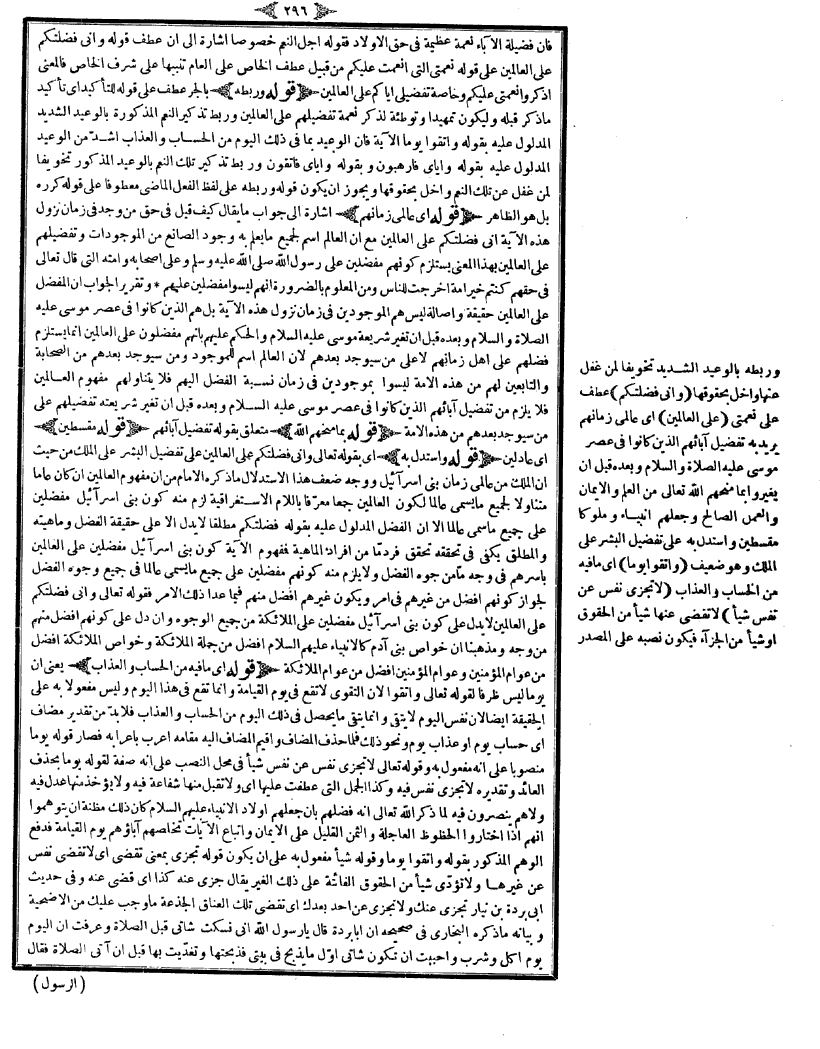 ﴿ ٢٩٦ ﴾
فان فضيلة الآباء نعمة عظيمة فى حق الاولاد فقوله اجل النعم خصوصا اشارة الى ان عطف قوله وانى فضلتكم
على العالمين على قوله نعمتى التى انعمت عليكم من قبيل عطف الخاص على العام تنبيها على شرف الخاص فالمعنى
اذكروا نعمتى عليكم وخاصة تفضيلى اياكم على العالمين ﴿ قوله وربطه ﴾ بالجر عطف على قوله للتأكيد اى تأكيد
ماذكر قبله وليكون تمهيدا وتوطئة لذكر نعمة تفضيلهم على العالمين وربط تذكير النعم المذكورة بالوعيد الشديد
المدلول عليه بقوله واتقوا يوما الآية فان الوعيد بما فى ذلك اليوم من الحساب والعذاب اشد من الوعيد
المدلول عليه بقوله واياى فارهبون وبقوله واياى فاتقون وربط تذكير تلك النعم بالوعيد المذكور تخويفا
لمن غفل عن تلك النعم واخل بحقوقها ويجوز ان يكون قوله وربطه على لفظ الفعل الماضى معطوفا على قوله كرره
بل هو الظاهر ﴿ قوله اى عالمى زمانهم ﴾ اشارة الى جواب مايقال كيف قيل فى حق من وجد فى زمان نزول
هذه الآية انى فضلتكم على العالمين مع ان العالم اسم لجميع مايعلم به وجود الصانع من الموجودات وتفضيلهم
على العالمين بهذا المعنى يستلزم كونهم مفضلين على رسول الله صلى الله عليه وسلم وعلى اصحابه وامته التى قال تعالى
فى حقهم كنتم خير امة اخرجت للناس ومن المعلوم بالضرورة انهم ليسوا مفضلين عليهم * وتقرير الجواب ان المفضل
على العالمين حقيقة واصالة ليس هم الموجودين فى زمان نزول هذه الآية بل هم الذين كانوا فى عصر موسى عليه
الصلاة والسلام وبعده قبل ان تغير شريعة موسى عليه السلام والحكم عليهم بانهم مفضلون على العالمين انما يستلزم
فضلهم على اهل زمانهم لاعلى من سيوجد بعدهم لان العالم اسم للموجود ومن سيوجد بعدهم من الصحابة
والتابعين لهم من هذه الامة ليسوا بموجودين فى زمان نسبة الفضل اليهم فلا يتناولهم مفهوم العالمين
فلا يلزم من تفضيل آبائهم الذين كانوا فى عصر موسى عليه السلام وبعده قبل ان تغير شريعته تفضيلهم على
من سيوجد بعدهم من هذه الامة ﴿ قوله بما منحهم الله ﴾ متعلق بقوله تفضيل آبائهم ﴿ قوله مقسطين ﴾
اى عادلين ﴿ قوله واستدل به ﴾ اى بقوله تعالى وانى فضلتكم على العالمين على تفضيل البشر على الملك من حيث
ان الملك من عالمى زمان بنى اسرآئيل ووجه ضعف هذا الاستدلال ماذكره الامام من ان مفهوم العالمين ان كان عاما
متناولا لجميع مايسمى عالما لكون العالمين جمعا معرفا باللام الاستغراقية لزم منه كون بنى اسرآئيل مفضلين
على جميع ماسمى عالما الا ان الفضل المدلول عليه بقوله فضلتكم مطلقا لايدل الا على حقيقة الفضل وماهيته
والمطلق يكفى فى تحققه تحقق فرد ما من افراد الماهية فمفهوم الآية كون بنى اسرآئيل مفضلين على العالمين
باسرهم فى وجه ما من جوه الفضل ولا يلزم منه كونهم مفضلين على جميع مايسمى عالما فى جميع وجوه الفضل
لجواز كونهم افضل من غيرهم فى امر ويكون غيرهم افضل منهم فيما عدا ذلك الامر فقوله تعالى وانى فضلتكم
على العالمين لايدل على كون بنى اسرآئيل مفضلين على الملائكة من جميع الوجوه وان دل على كونهم افضل منهم
من وجه ومذهبنا ان خواص بنى آدم كالانبياء عليهم السلام افضل من جملة الملائكة وخواص الملائكة افضل
من عوام المؤمنين وعوام المؤمنين افضل من عوام الملائكة ﴿ قوله اى مافيه من الحساب والعذاب ﴾ يعنى ان
يوما ليس ظرفا لقوله تعالى واتقوا لان التقوى لاتقع فى يوم القيامة وانما تقع فى هذا اليوم وليس مفعولا به على
الحقيقة ايضا لان نفس اليوم لايتقى وانما يتقى مايحصل فى ذلك اليوم من الحساب والعذاب فلابد من تقدير مضاف
اى حساب يوم او عذاب يوم ونحو ذلك فلما حذف المضاف واقيم المضاف اليه مقامه اعرب باعرابه فصار قوله يوما
منصوبا على انه مفعول به وقوله تعالى لاتجزى نفس عن نفس شيأ فى محل النصب على انه صفة لقوله يوما بحذف
العائد وتقديره لاتجزى نفس فيه وكذا الجمل التى عطفت عليها اى ولا تقبل منها شفاعة فيه ولا يؤخذ منها عدل فيه
ولاهم ينصرون فيه لما ذكر الله تعالى انه فضلهم بان جعلهم اولاد الانبياء عليهم السلام كان ذلك مظنة ان يتوهموا
انهم اذا اختاروا الحظوظ العاجلة والثمن القليل على الايمان واتباع الآيات تخاصهم آباؤهم يوم القيامة فدفع
الوهم المذكور بقوله واتقوا يوما وقوله شيأ مفعول به على ان يكون قوله تجزى بمعنى تقضى اى لاتقضى نفس
عن غيرها ولا تؤدى شيأ من الحقوق الفائتة على ذلك الغير يقال جزى عنه كذا اى قضى عنه وفى حديث
ابى بردة بن نيار تجزى عنك ولا تجزى عن احد بعدك اى تقضى تلك العناق الجذعة ماوجب عليك من الاضحية
وبيانه ماذكره البخارى فى صحيحه ان ابا بردة قال يارسول الله انى نسكت شاتى قبل الصلاة وعرفت ان اليوم
يوم اكل وشرب واحببت ان تكون شاتى اول مايذبح فى بيتى فذبحتها وتغذيت بها قبل ان آتى الصلاة فقال
( الرسول )
وربطه بالوعيد الشديد تخويفا لمن غفل
عنها واخل بحقوقها (وانى فضلتكم) عطف
على نعمتى (على العالمين) اى عالمى زمانهم
يريد به تفضيل آبائهم الذين كانوا فى عصر
موسى عليه الصلاة والسلام وبعده قبل ان
يغيروا بما منحهم الله تعالى من العلم والايمان
والعمل الصالح وجعلهم انبياء وملوكا
مقسطين واستدل به على تفضيل البشر على
الملك وهو ضعيف (واتقوا يوما) اى مافيه
من الحساب والعذاب (لاتجزى نفس عن
نفس شيأ) لاتقضى عنها شيأ من الحقوق
اوشيأ من الجزآء فيكون نصبه على المصدر